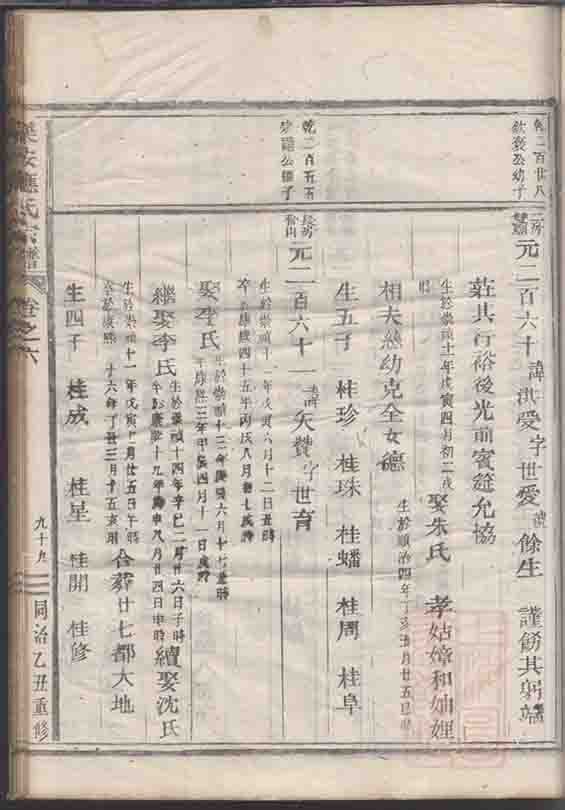 乾二百廿八
欽褒公幼子
二房
元二百六十諱洪愛字世愛號餘生 謹飭其躬端
莊其行裕後光前賓筵允協
生於崇禎十一年戊寅四月初二戌時 娶朱氏 孝姑嫜和妯娌
生於順治四年丁亥五月廿五日
相夫慈幼克全女德
生五子 桂珍 桂珠 桂蟠 桂周 桂阜
乾二百五五
長房
元二百六十一諱天贊字世育
生於崇禎十一年戊寅六月十二日丑時
卒於康熙四十五年丙戌八月初七戌時
娶李氏 生於崇禎十三年庚辰六月十七丑時
卒康熙三年甲辰四月十一日戌時
繼娶李氏 生於崇禎十四年辛巳二月廿六日子時
卒於康熙十九年庚申八月廿四日申時 續娶沈氏
生於崇禎十一年戊寅二月廿五日午時
卒於康熙三十六年丁丑三月十五亥時 合葬廿七都大地
生四子 桂成 桂星 桂開 桂修
樂安應氏宗譜 卷之六 九十九 同治乙丑重修